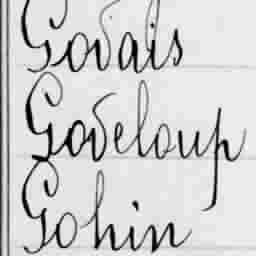 Godals
Godeloup
Gohin